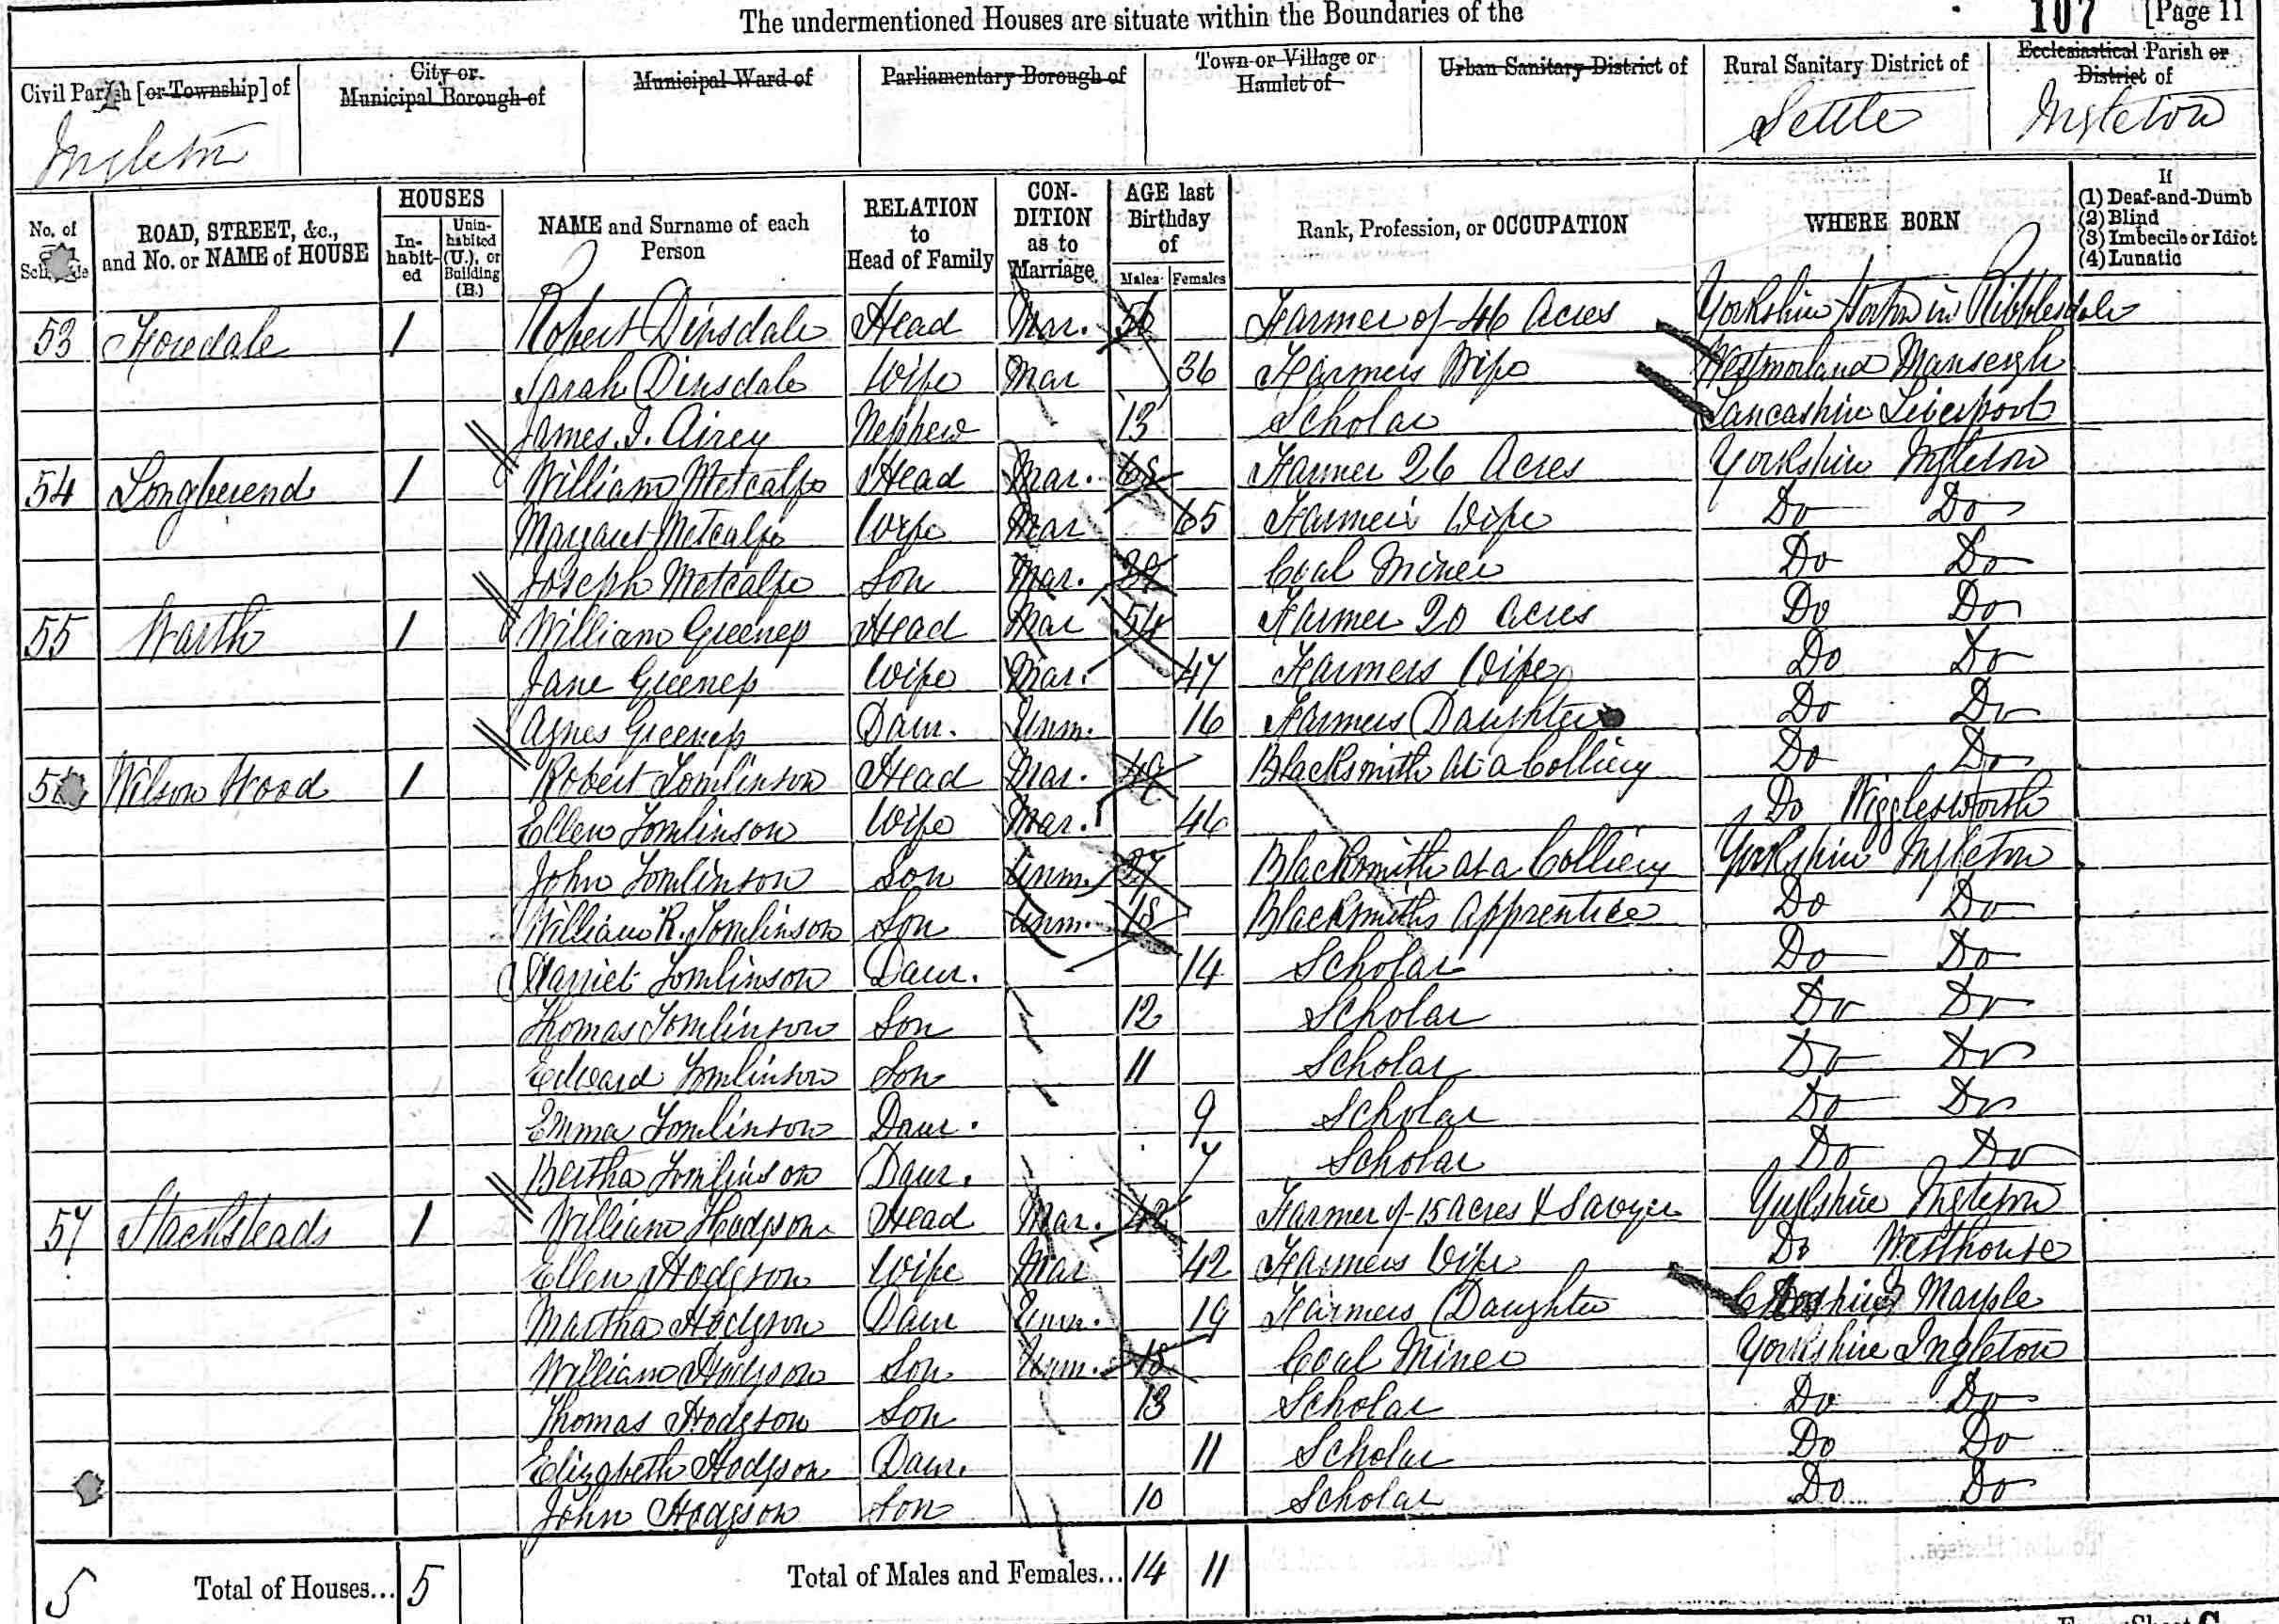 The undermentioned Houses are situate within the Boundaries of the 107 [Page 11
Civil Parish [or Township] of
City or Municipal Borough of
Municipal Ward of
Parliamentary Borough of
Town or Village or Hamlet of
Urban Sanitary District of
Rural Sanitary District of
Ecclesiastical Parish or District of
Ingleton Settle Ingleton
No. of Schedule
ROAD, STREET, &c., and No. or NAME of HOUSE
HOUSES
In-habit-ed
Unin-habited (U.), or Building (B.)
NAME and Surname of each Person
RELATION to Head of Family
CON-DITION as to Marriage
AGE last Birthday of
Males Females
Rank, Profession, or OCCUPATION
WHERE BORN
If
(1) Deaf-and-Dumb
(2) Blind
(3) Imbecile or Idiot
(4) Lunatic
53 1 Robert Dinsdale Head Mar. Farmer of 46 Acres Yorkshire Horton in Ribblesdale
Sarah Dinsdale Wife Mar 36 Farmers Wife Westmorland Mansergh
James. I. Airey Nephew 13 Scholar Lancashire Liverpool
54 1 William Metcalfe Head Mar. 68 Farmer 26 Acres Yorkshire Ingleton
Margaret Metcalfe Wife Mar 65 Farmers Wife Do Do
Joseph Metcalfe Son Mar. Coal Miner Do Do
55 Warth 1 William Greenep Head Mar 54 Farmer 20 Acres Do Do
Jane Greenep Wife Mar. 47 Farmers Wife Do Do
Agnes Greenep Daur. Unm. 16 Farmers Daughter Do Do
56 Wilson Wood 1 Robert Tomlinson Head Mar. 49 Blacksmith at a Colliery Do Do
Ellen Tomlinson Wife Mar. 46 Do Wigglesworth
John Tomlinson Son Unm. 27 Blacksmith at a Colliery Yorkshire Ingleton
William R. Tomlinson Son Unm. 18 Blacksmiths Apprentice Do Do
Harriet Tomlinson Daur. 14 Scholar Do Do
Thomas Tomlinson Son 12 Scholar Do Do
Edward Tomlinson Son 11 Scholar Do Do
Emma Tomlinson Daur. 9 Scholar Do Do
Bertha Tomlinson Daur. 7 Scholar Do Do
57 Stacksteads 1 William Hodgson Head Mar. 42 Farmer of 15 Acres & Sawyer Yorkshire Ingleton
Ellen Hodgson Wife Mar 42 Farmers Wife Do Westhouse
Martha Hodgson Daur Unm. 19 Farmers Daughter Cheshire Marple
William Hodgson Son Unm. 15 Coal Miner Yorkshire Ingleton
Thomas Hodgson Son 13 Scholar Do Do
Elizabeth Hodgson Daur. 11 Scholar Do Do
John Hodgson Son 10 Scholar Do Do
5 Total of Houses... 5 Total of Males and Females... 14 11